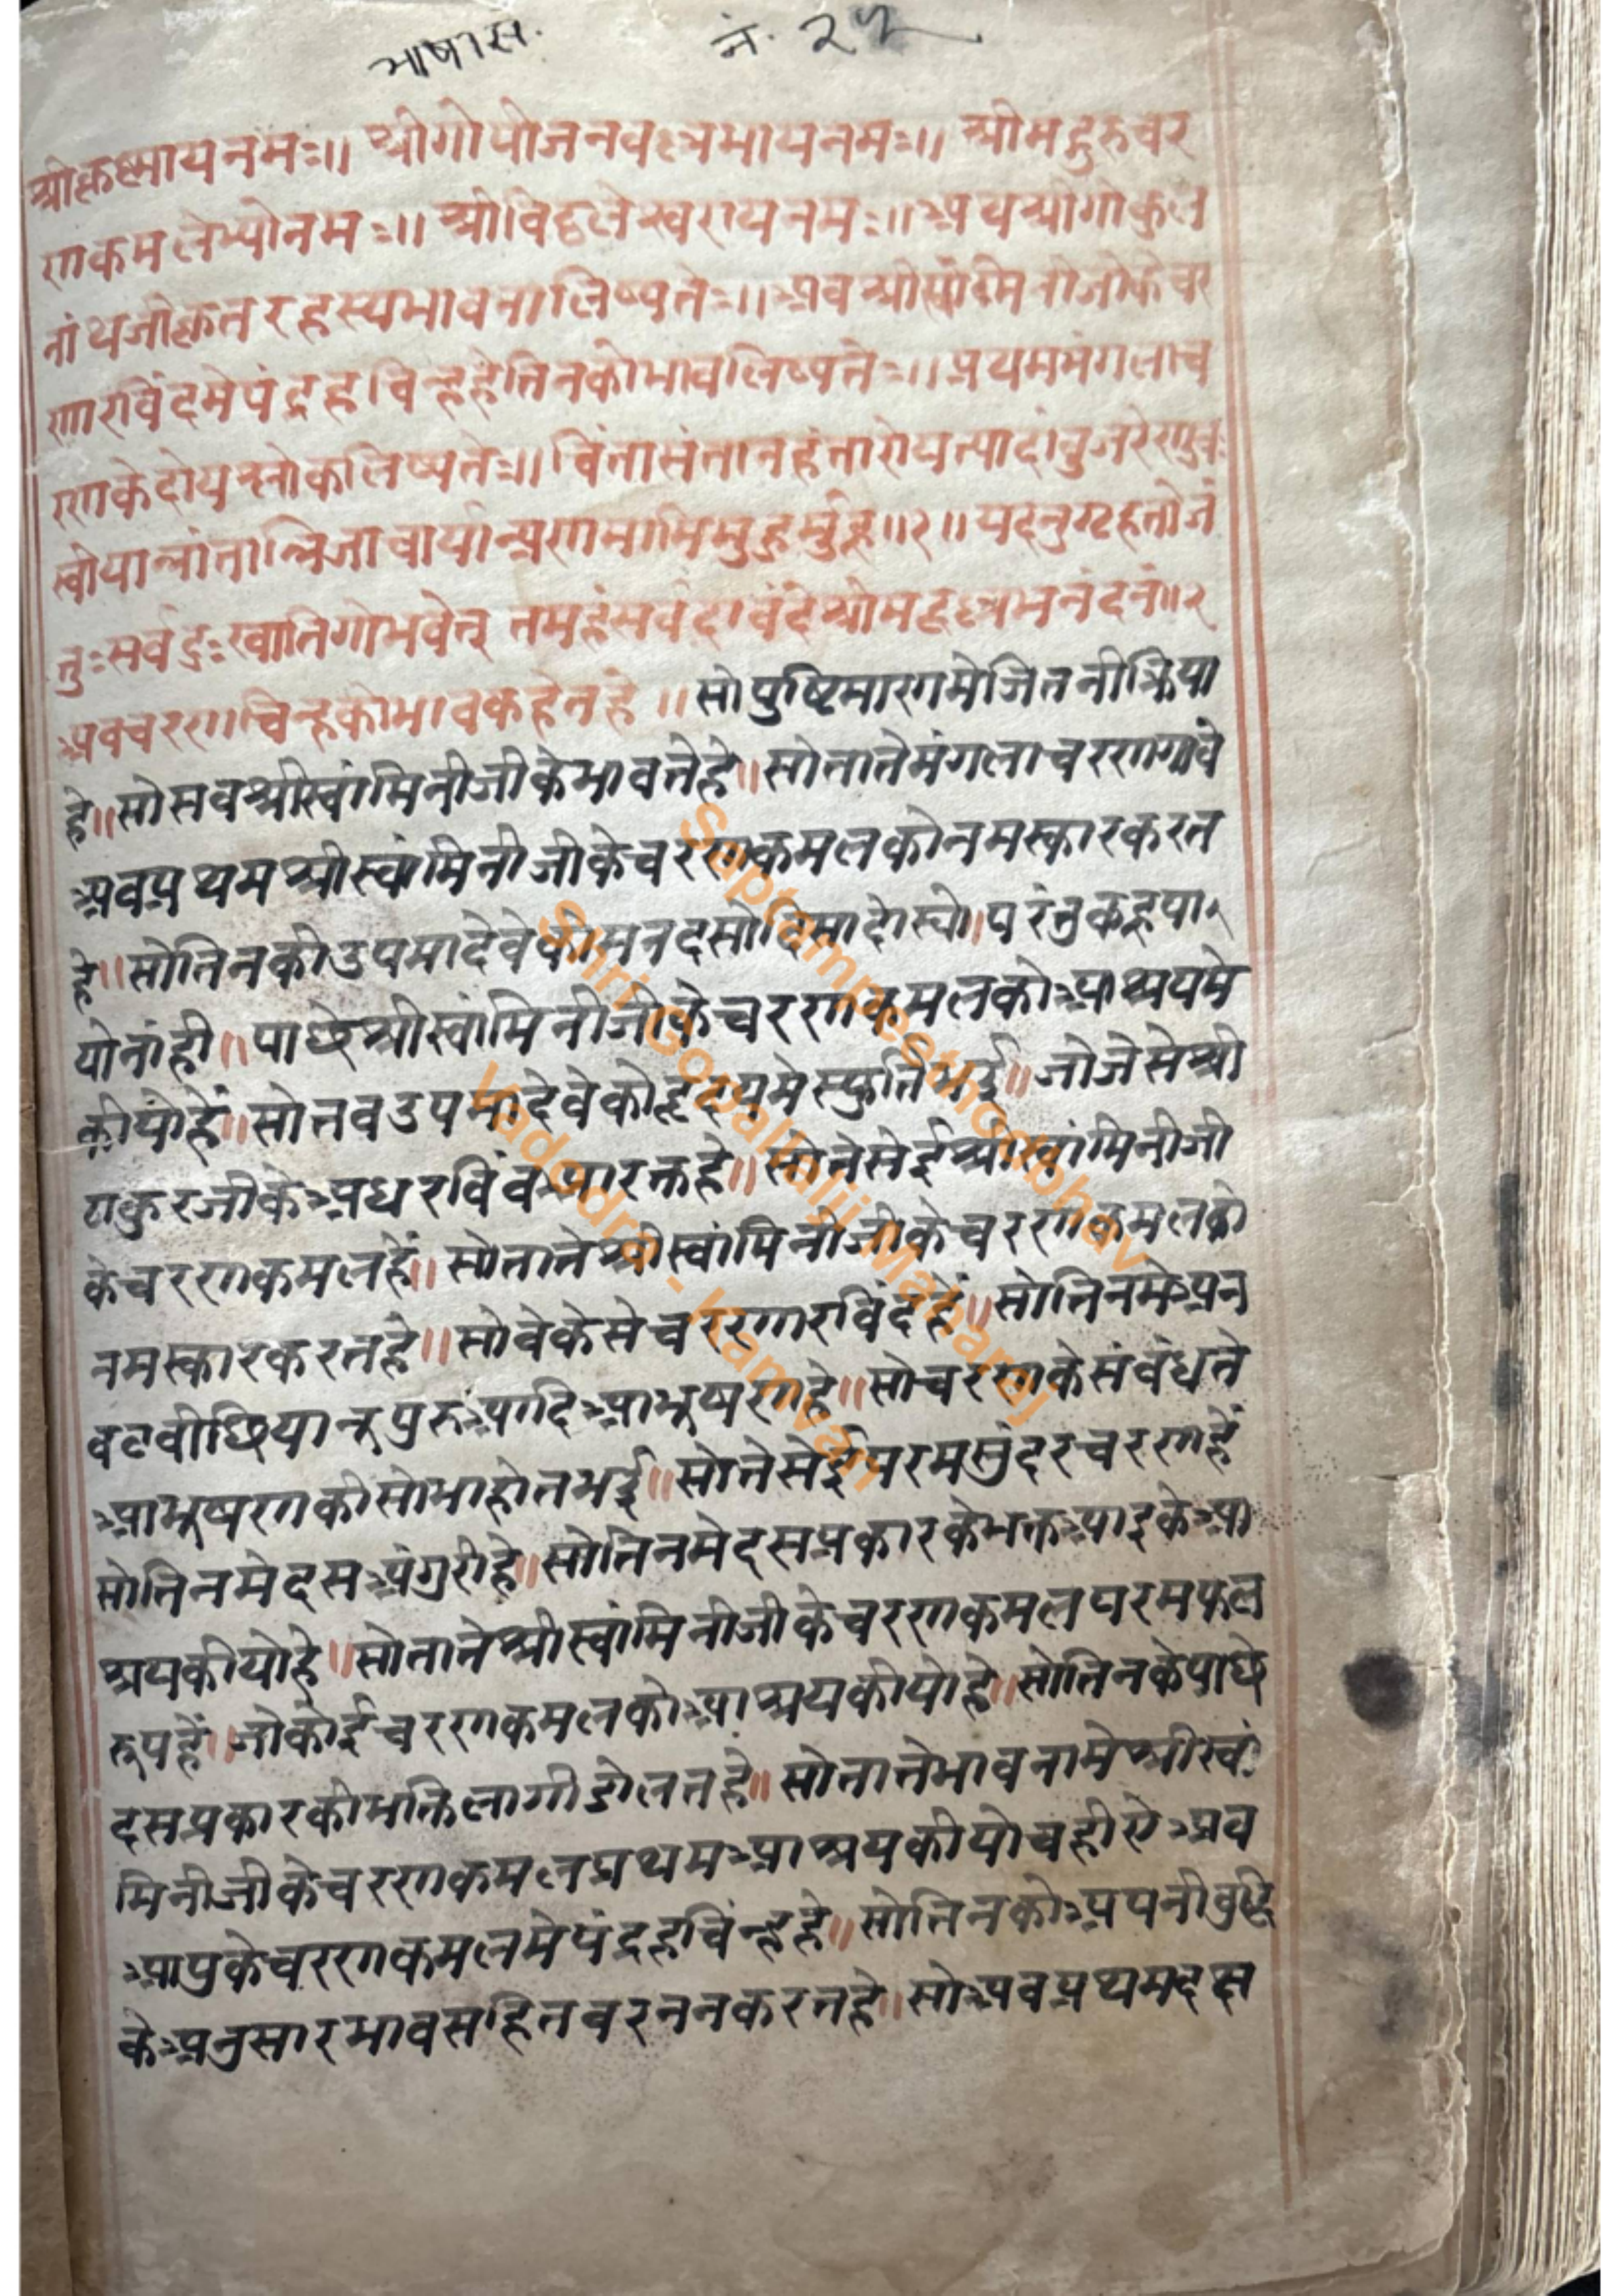 भाषास. नं. २५
श्रीकृष्णायनमः॥ श्रीगोपीजनवल्लभायनमः॥ श्रीमद्गुरुचर
णकमलेभ्योनमः॥ श्रीविठ्ठलेस्वरायनमः॥ अथश्रीगोकुल
नांथजीकृतरहस्यभावनालिष्यते॥ अबश्रीस्वांमिनीजीकेचर
णारविंदमेपंद्रहचिन्हहेतिनकोभावलिष्यते॥ प्रथममंगलाच
रणकेदोयश्लोकलिष्यते॥ चिंतासंतानहंतारोयत्पादांबुजरेणवः
स्वीयानांतान्निजाचार्यान्प्रणमामिमुहुर्मुहु॥१॥ यदनुग्रहतोजं
तुःसर्वदुःखातिगोभवेत् तमहंसर्वदावंदेश्रीमद्वल्लभनंदनं॥२
अबचरणचिन्हकोभावकहेतहे॥ सोपुष्टिमारगमेजितनीक्रिया
हे॥ सोसबश्रीस्वांमिनीजीकेभावतेहे॥ सोतातेमंगलाचरणगावे
अबप्रथमश्रीस्वांमिनीजीकेचरणकमलकोनमस्कारकरत
हे॥ सोतिनकीउपमादेवेकोमनदसोदिसादोरयो॥ परंतुकहूपा
योनांही॥ पाछेश्रीस्वांमिनीजीकेचरणकमलकोआश्रयमे
कीयोहें॥ सोतबउपमादेवेकोहृदयमेस्फुर्तिभई॥ जोजेसेश्री
ठाकुरजीकेअधरबिंबआरक्तहे॥ सोतेसेईश्रीस्वांमिनीजी
केचरणकमलहें॥ सोतातेश्रीस्वांमिनीजीकेचरणकमलको
नमस्कारकरतहे॥ सोवेकेसेचरणारविंदहें॥ सोतिनमेअन
वटवीछियानूपुरुआदिआभूषणहे॥ सोचरणकेसंबंधते
आभूषणकीसोभाहोतभई॥ सोतेसेईपरमसुंदरचरणहें
सोतिनमेदसअंगुरीहे॥ सोतिनमेदसप्रकारकेभक्तआइकेआ
श्रयकीयोहे॥ सोतातेश्रीस्वांमिनीजीकेचरणकमलपरमफल
रूपहें॥ जोकोईचरणकमलकोआश्रयकीयोहे॥ सोतिनकेपाछे
दसप्रकारकीभक्तिलागीडोलतहे॥ सोतातेभावनामेश्रीस्वां
मिनीजीकेचरणकमलप्रथमआश्रयकीयोचहीऐअब
आपुकेचरणकमलमेपंद्रहचिंन्हहे॥ सोतिनकोअपनीबुद्धि
केअनुसारभावसहितबरननकरतहे॥ सोअबप्रथमदक्ष